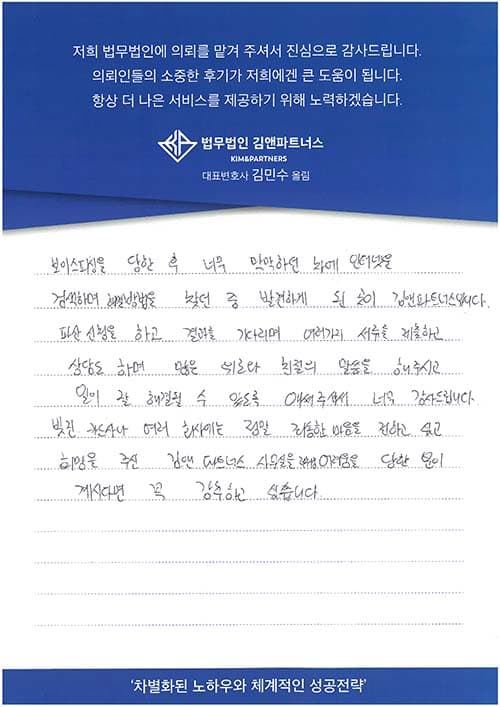 저희 법무법인에 의뢰를 맡겨 주셔서 진심으로 감사드립니다.
의뢰인들의 소중한 후기가 저희에겐 큰 도움이 됩니다.
항상 더 나은 서비스를 제공하기 위해 노력하겠습니다.
법무법인 김앤파트너스
KIM&PARTNERS
대표변호사 김민수 올림
보이스피싱을 당한 후 너무 막막하던 차에 인터넷을
검색하며 해결방법을 찾던 중 발견하게 된 곳이 김앤파트너스입니다.
파산 신청을 하고 결과를 기다리며 여러가지 서류를 제출하고
상담도 하며 많은 위로와 친절의 말씀을 해주시고
일이 잘 해결될 수 있도록 애써주셔서 너무 감사드립니다.
빚진 여러 회사에는 정말 죄송한 마음을 전하고 싶고
희망을 주신 김앤 파트너스 사무실을 어려움을 당한 분이
계시다면 꼭 강추하고 싶습니다.
'차별화된 노하우와 체계적인 성공전략'